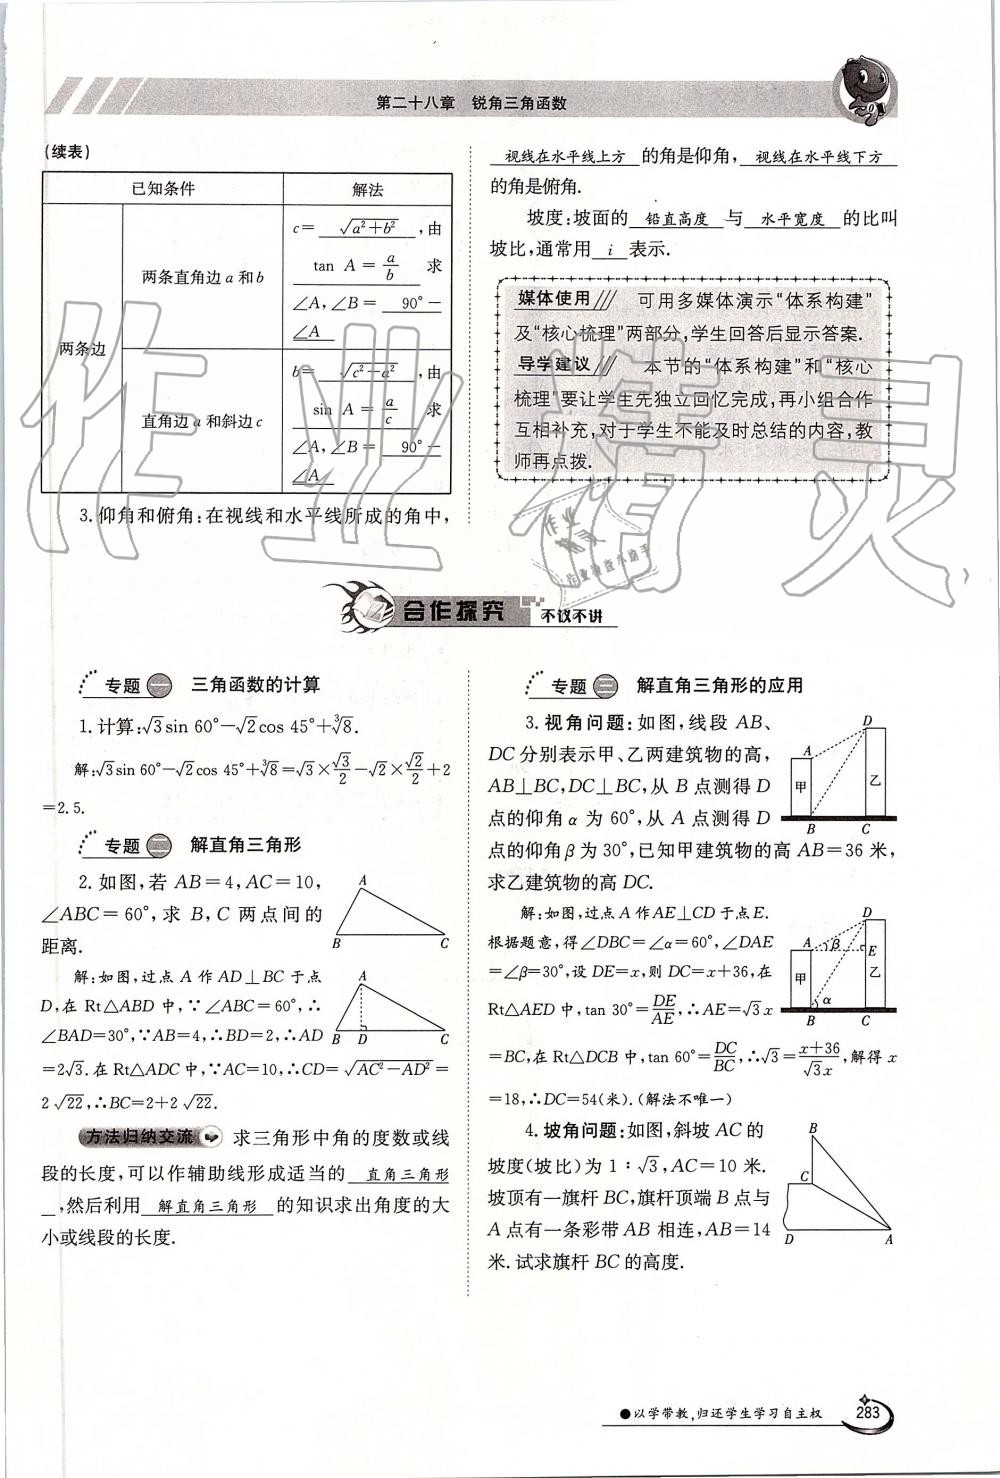 第二十八章 锐角三角函数
(续表)
已知条件 解法
两条边
两条直角边 a 和 b
c= √(a²+b²) ,由
tan A = a/b 求
∠A,∠B= 90°−
∠A
直角边 a 和斜边 c
b= √(c²−a²) ,由
sin A = a/c 求
∠A,∠B= 90°−
∠A
3. 仰角和俯角:在视线和水平线所成的角中,
视线在水平线上方 的角是仰角, 视线在水平线下方
的角是俯角.
坡度:坡面的 铅直高度 与 水平宽度 的比叫
坡比,通常用 i 表示.
媒体使用/// 可用多媒体演示“体系构建”
及“核心梳理”两部分,学生回答后显示答案.
导学建议/// 本节的“体系构建”和“核心
梳理”要让学生先独立回忆完成,再小组合作
互相补充,对于学生不能及时总结的内容,教
师再点拨.
合作探究 不议不讲
专题一 三角函数的计算
1. 计算:√3sin 60°−√2cos 45°+∛8.
解:√3sin 60°−√2cos 45°+∛8=√3×√3/2−√2×√2/2+2
=2.5.
专题二 解直角三角形
2. 如图,若 AB=4,AC=10,
∠ABC=60°,求 B,C 两点间的
距离.
A
B C
解:如图,过点 A 作 AD⊥BC 于点
D,在 Rt△ABD 中,∵∠ABC=60°,∴
∠BAD=30°,∵AB=4,∴BD=2,∴AD
=2√3.在 Rt△ADC 中,∵AC=10,∴CD=√(AC²−AD²)=
2√22,∴BC=2+2√22.
A
B D C
方法归纳交流 求三角形中角的度数或线
段的长度,可以作辅助线形成适当的 直角三角形
,然后利用 解直角三角形 的知识求出角度的大
小或线段的长度.
专题三 解直角三角形的应用
3. 视角问题:如图,线段 AB、
DC 分别表示甲、乙两建筑物的高,
AB⊥BC,DC⊥BC,从 B 点测得 D
点的仰角 α 为 60°,从 A 点测得 D
点的仰角 β 为 30°,已知甲建筑物的高 AB=36 米,
求乙建筑物的高 DC.
D
A
甲 乙
B C
解:如图,过点 A 作 AE⊥CD 于点 E.
根据题意,得∠DBC=∠α=60°,∠DAE
=∠β=30°,设 DE=x,则 DC=x+36,在
Rt△AED 中,tan 30°=DE/AE,∴AE=√3x
=BC,在 Rt△DCB 中,tan 60°=DC/BC,∴√3=(x+36)/(√3x),解得 x
=18,∴DC=54(米).(解法不唯一)
D
A β E
甲 乙
α
B C
4. 坡角问题:如图,斜坡 AC 的
坡度(坡比)为 1∶√3,AC=10 米.
坡顶有一旗杆 BC,旗杆顶端 B 点与
A 点有一条彩带 AB 相连,AB=14
米.试求旗杆 BC 的高度.
B
C
D A
●以学带教,归还学生学习自主权
283
作业精灵